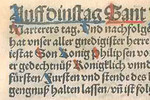 Auff dinstag Sant
Marterers tag. Und nachfolge
hat unser aller gnedigister herr
iestat Son König Philipsen vo
er gedechtnüß Königklich und
fürsten Fursten und stende des h
gengnuß halten lassen/ un̄ ist folg